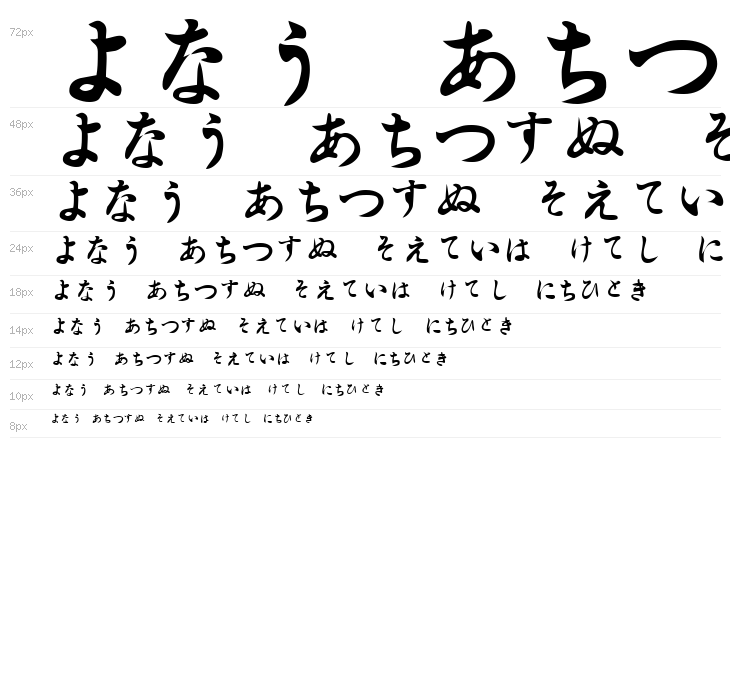 72px よなう　あちつ
48px よなう　あちつすぬ　そ
36px よなう　あちつすぬ　そえてい
24px よなう　あちつすぬ　そえていは　けてし　に
18px よなう　あちつすぬ　そえていは　けてし　にちひとき
14px よなう　あちつすぬ　そえていは　けてし　にちひとき
12px よなう　あちつすぬ　そえていは　けてし　にちひとき
10px よなう　あちつすぬ　そえていは　けてし　にちひとき
8px よなう　あちつすぬ　そえていは　けてし　にちひとき